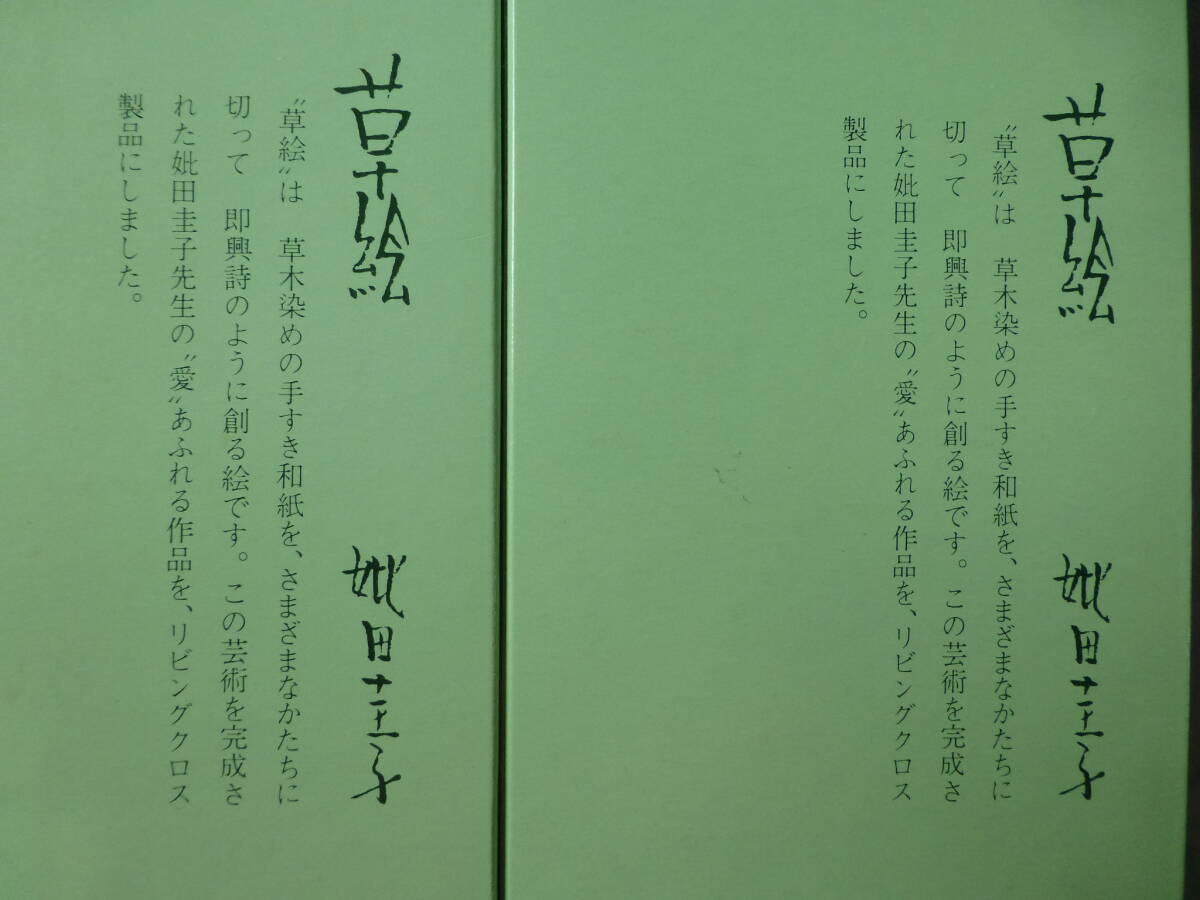 草絵
妣田圭子
〝草絵〟は　草木染めの手すき和紙を、さまざまなかたちに
切って　即興詩のように創る絵です。この芸術を完成さ
れた妣田圭子先生の〝愛〟あふれる作品を、リビングクロス
製品にしました。
草絵
妣田圭子
〝草絵〟は　草木染めの手すき和紙を、さまざまなかたちに
切って　即興詩のように創る絵です。この芸術を完成さ
れた妣田圭子先生の〝愛〟あふれる作品を、リビングクロス
製品にしました。